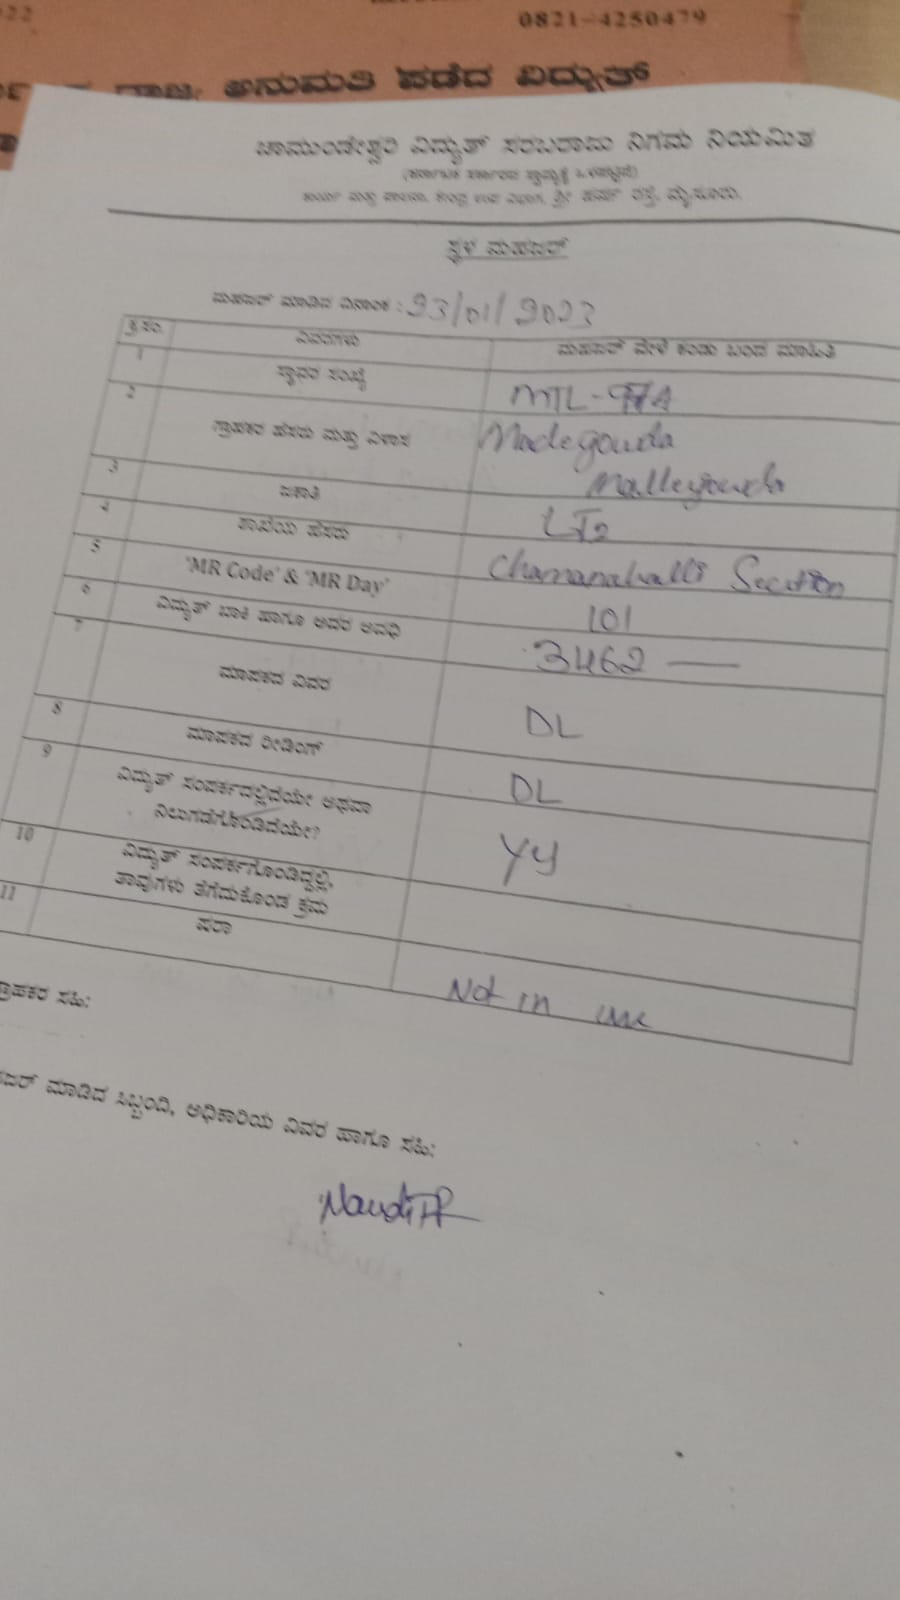 0821-4250479
ರಾಜ್ಯ ಅನುಮತಿ ಪಡೆದ ವಿದ್ಯುತ್
ಚಾಮುಂಡೇಶ್ವರಿ ವಿದ್ಯುತ್ ಸರಬರಾಜು ನಿಗಮ ನಿಯಮಿತ
(ಕರ್ನಾಟಕ ಸರ್ಕಾರದ ಸ್ವಾಮ್ಯಕ್ಕೆ ಒಳಪಟ್ಟಿದೆ)
ಕಾರ್ಯ ಮತ್ತು ಪಾಲನಾ, ಕೇಂದ್ರ ಉಪ ವಿಭಾಗ, ಶ್ರೀ ಹರ್ಷ ರಸ್ತೆ, ಮೈಸೂರು.
ಸ್ಥಳ ಮಹಜರ್
ಮಹಜರ್ ಮಾಡಿದ ದಿನಾಂಕ : 23/01/2023
ಕ್ರ.ಸಂ. ವಿವರಗಳು ಮಹಜರ್ ವೇಳೆ ಕಂಡು ಬಂದ ಮಾಹಿತಿ
1 ಸ್ಥಾವರ ಸಂಖ್ಯೆ MTL-
2 ಗ್ರಾಹಕರ ಹೆಸರು ಮತ್ತು ವಿಳಾಸ Madegowda
Mallegowda
3 ಜಕಾತಿ LT2
4 ಶಾಖೆಯ ಹೆಸರು Chamanahalli Secution
5 'MR Code' & 'MR Day' 101
6 ವಿದ್ಯುತ್ ಬಾಕಿ ಹಾಗೂ ಅದರ ಅವಧಿ 3462 —
7 ಮಾಪಕದ ವಿವರ DL
8 ಮಾಪಕದ ರೀಡಿಂಗ್ DL
9 ವಿದ್ಯುತ್ ಸಂಪರ್ಕದಲ್ಲಿದೆಯೇ ಅಥವಾ
ನಿಲುಗಡೆಗೊಂಡಿದೆಯೇ? YY
10 ವಿದ್ಯುತ್ ಸಂಪರ್ಕಗೊಂಡಿದ್ದಲ್ಲಿ,
ತಾವುಗಳು ತೆಗೆದುಕೊಂಡ ಕ್ರಮ
11 ಷರಾ Not in use
ಗ್ರಾಹಕರ ಸಹಿ:
ಜರ್ ಮಾಡಿದ ಸಿಬ್ಬಂದಿ, ಅಧಿಕಾರಿಯ ವಿವರ ಹಾಗೂ ಸಹಿ: